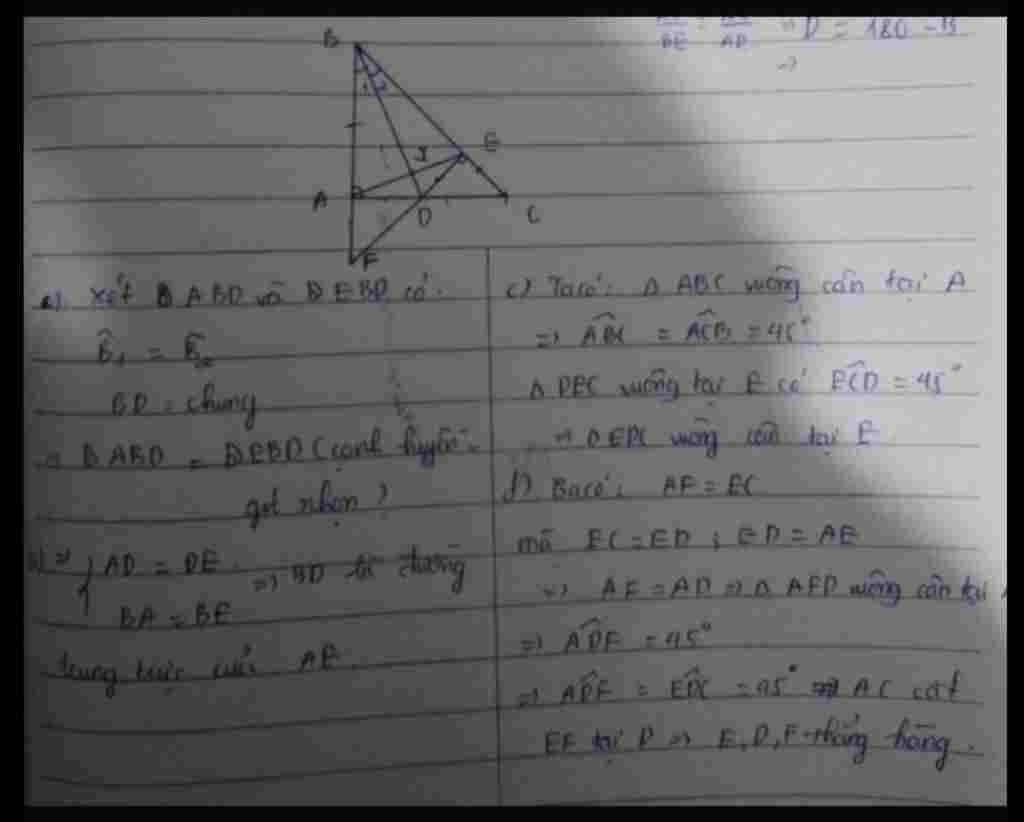 BE AD ⇒ D = 180 - B
⇒
B
1 2
I E
A D C
F
a) Xét Δ ABD và Δ EBD có:
B̂₁ = B̂₂
BD = chung
⇒ Δ ABD = Δ EBD (cạnh huyền -
góc nhọn)
b) ⇒ { AD = DE
BA = BE ⇒ BD là đường
trung trực của AE.
c) Ta có: Δ ABC vuông cân tại A
⇒ ABC = ACB = 45°
Δ DEC vuông tại E có ECD = 45°
⇒ Δ EDC vuông cân tại E
d) Ta có: AF = EC
mà EC = ED ; ED = AE
⇒ AF = AD ⇒ Δ AFD vuông cân tại
⇒ ADF = 45°
⇒ ADF = EDC = 45° ⇒ AC cắt
EF tại D ⇒ E, D, F thẳng hàng.